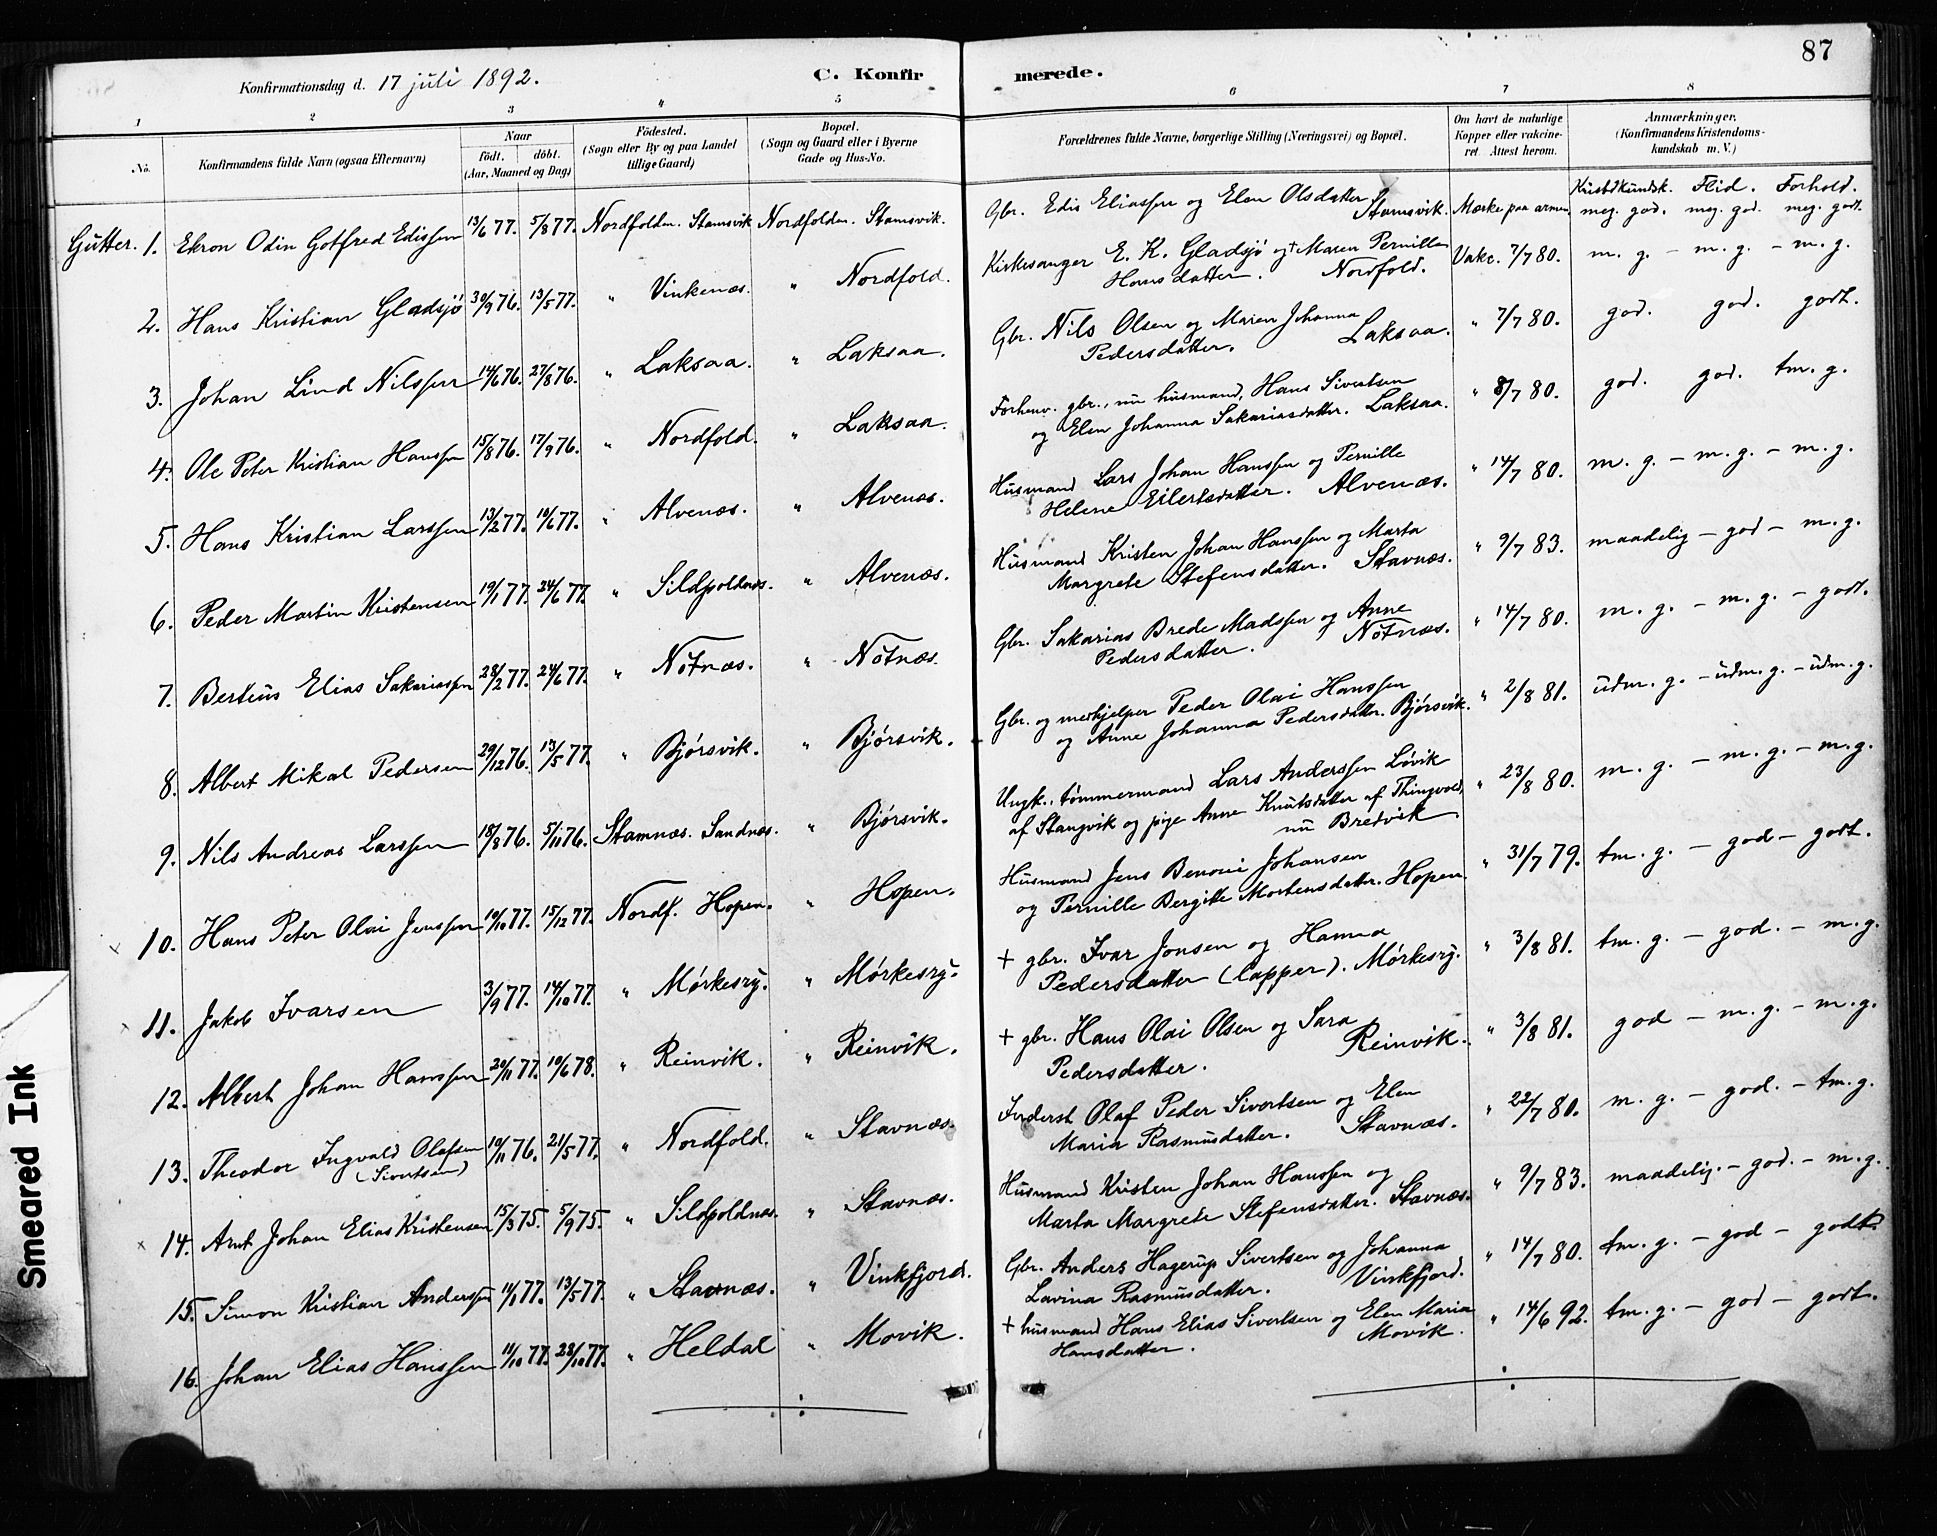 87
Konfirmationsdag d. 17 juli 1892. C. Konfirmerede.
1 2 3 4 5 6 7 8
No. Konfirmandens fulde Navn (ogsaa Efternavn) Naar födt. döbt. (Aar, Maaned og Dag) Födested. (Sogn eller By og paa Landet tillige Gaard) Bopæl. (Sogn og Gaard eller i Byerne Gade og Hus-No. Forældrenes fulde Navne, borgerlige Stilling (Næringsvei) og Bopæl. Om havt de naturlige Kopper eller vakcineret. Attest herom. Anmærkninger. (Konfirmandens Kristendomskundskab m. V.)
Kristdkundsk. Flid. Forhold.
Gutter. 1. Ekron Odin Gotfred Edissen 13/6 77. 5/8 77. Nordfolden. Stamsvik Nordfolden. Stamsvik. Gbr. Edis Eliassen og Elen Olsdatter Stamsvik. Mærke paa armen. meg. god. meg. god. meg. godt.
2. Hans Kristian Gladsjö 30/9 76. 13/5 77. " Vinkenæs. " Nordfold. Kirkesanger E. K. Gladsjö og + Maren Pernille
Hansdatter. Nordfold. Vakc. 7/7 80. m. g. – m. g. – m. g.
3. Johan Lind Nilssen 14/6 76. 27/8 76. " Laksaa. " Laksaa. Gbr. Nils Olsen og Maren Johanna
Pedersdatter. Laksaa. " 7/7 80. god. god. godt.
4. Ole Peter Kristian Hanssen 15/8 76. 17/9 76. " Nordfold. " Laksaa. Forhenv. gbr., nu husmand, Hans Sivertsen
og Elen Johanna Sakariasdatter. Laksaa. " 8/7 80. god. god. tm. g.
5. Hans Kristian Larssen 13/2 77. 10/6 77. " Alvenæs. " Alvenæs. Husmand Lars Johan Hanssen og Pernille
Helene Eilertsdatter. Alvenæs. " 14/7 80. m. g. – m. g. – m. g.
6. Peder Martin Kristensen 19/1 77. 24/6 77. " Sildpoldnæs. " Alvenæs. Husmand Kristen Johan Hanssen og Marta
Margrete Stefensdatter. Stavnæs. " 9/7 83. maadelig – god – m. g.
7. Berteus Elias Sakariassen 28/2 77. 24/6 77. " Nötnæs. " Nötnæs. Gbr. Sakarias Brede Madssen og Anne
Pedersdatter. Nötnæs. " 14/7 80. m. g. – m. g. – godt.
8. Albert Mikal Pedersen 29/12 76. 13/5 77. " Bjórsvik. " Bjórsvik. Gbr. og medhjelper Peder Olai Hanssen
og Anne Johanna Pedersdatter. Bjórsvik. " 2/8 81. udm. g. – udm. g. – udm. g.
9. Nils Andreas Larssen 18/8 76. 5/11 76. Stamnæs. Sandnæs. " Bjórsvik. Ungk., tómmermand Lars Anderssen Lóvik
af Stangvik og pige Anne Knutsdatter af Thingvold,
nu Bredvik " 23/8 80. m. g. – m. g. – m. g.
10. Hans Peter Olai Jenssen 10/10 77. 15/12 77. Nordf. Hopen. " Hopen. Husmand Jens Benoni Johansen
og Pernille Bergitte Mortensdatter. Hopen " 31/7 79. tm. g. – god – godt.
11. Jakob Ivarsen 3/9 77. 14/10 77. " Mórkesry. " Mórkesry. + gbr. Ivar Jonsen og Hanna
Pedersdatter (lapper). Mórkesry. " 3/8 81. tm. g. – god. – m. g.
12. Albert Johan Hanssen 20/11 77. 10/6 78. " Reinvik. " Reinvik. + gbr. Hans Olai Olsen og Sara
Pedersdatter. Reinvik. " 3/8 81. god – m. g. – m. g.
13. Theodor Ingvald Olafsen
(Sivertsen) 10/11 76. 21/5 77. " Nordfold. " Stavnæs. Inderst Olaf Peder Sivertsen og Elen
Maria Rasmusdatter. Stavnæs. " 22/7 80. m. g. – god. – tm. g.
14. Arnt Johan Elias Kristensen 15/3 75. 5/9 75. " Sildpoldnæs. " Stavnæs. Husmand Kristen Johan Hanssen og
Marta Margrete Stefensdatter. Stavnæs. " 9/7 83. maadelig. – god. – m. g.
15. Simon Kristian Anderssen 11/1 77. 13/5 77. " Stavnæs. " Vinkfjord. Gbr. Anders Hagerup Sivertsen og Johanna
Lavina Rasmusdatter. Vinkfjord. " 14/7 80. tm. g. – god – godt.
16. Johan Elias Hanssen 11/10 77. 28/10 77. " Heldal " Movik. + husmand Hans Elias Sivertsen og Elen Maria
Hansdatter. Movik. " 14/6 92. tm. g. – god – godt.
Smeared Ink